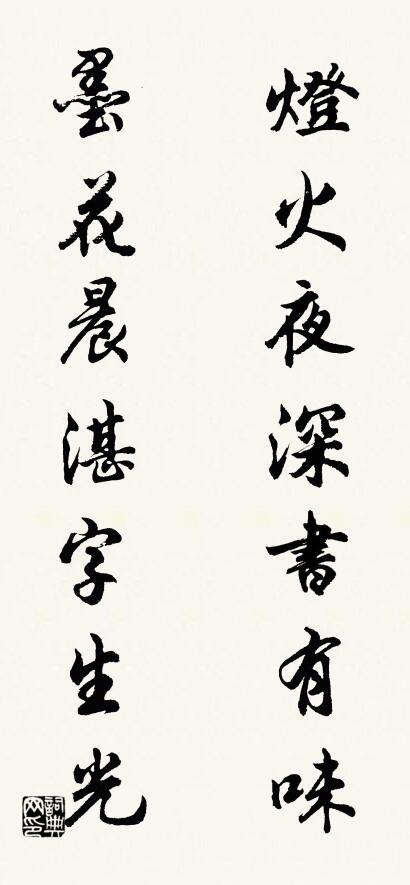 燈火夜深書有味
墨花晨湛字生光
詞典網印